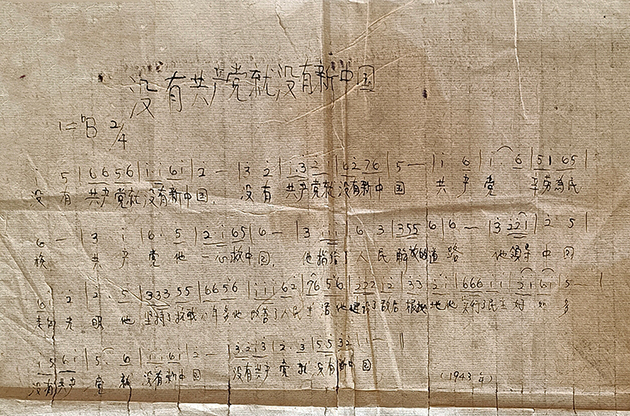 没有共产党就没有新中国
1=ᵇB 2/4
5 | 6 6 5 6 | i i 6 i | 2 — | 3 2 | i. 3 2 | 6 2 7 6 | 5 — | i 6 | i 6 | 5 i 6 5 |
没有 共产党就 没有新中国, 没有 共产党就 没有新中国 共产党 辛劳为民
6 — | 3 i | 6. 5 | 2 i 6 5 | 6 — | 3 i i i | 6 3 | 3 5 5 | 6 6 — | 3 2 2 i | 2. 5 |
族 共产党他 一心救中国 他指给了人民 解放的道路 他领导中国
6 2 | 2 5 | 3 3 3 5 5 | 6 6 5 6 | i i i 6 2 | 7 6 5 6 | 2 2 2 i 2 | 3 3 2 i | 6 6 6 i i | 2 i 6 i | 5 —
走向光明 他 坚持了抗战八年多 他改善了人民生活 他建设了敌后根据地 他实行了民主好处多
i 5 | 6 i | 5. 6 | i i 6 i | 2 — | 3 2 3 | 2. 3 | 5 5 3 2 | i — | i
没有共产党就 没有新中国 没有共产党就 没有新中国
(1943年)